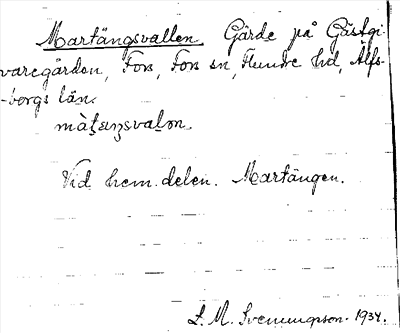 Martängsvallen Gärde på Gästgi-
varegården, Fors, Fors sn, Flundre hd, Älfs-
-borgs län.
Vid hem.delen. Martängen.
L. M. Svenungsson. 1934.